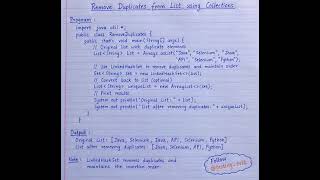 Remove Duplicates from List using Collections
Program :
import java.util.*;
public class RemoveDuplicates {
public static void main(String[] args) {
// Original list with duplicate elements
List<String> list = Arrays.asList("Java", "Selenium", "Java",
"API", "Selenium", "Python");
// Use LinkedHashSet to remove duplicates and maintain order
Set<String> set = new LinkedHashSet<>(list);
// Convert back to list (optional)
List<String> uniqueList = new ArrayList<>(set);
// Print results
System.out.println("Original List: " + list);
System.out.println("List after removing duplicates: " + uniqueList);
}
}
Output :
Original List: [Java, Selenium, Java, API, Selenium, Python]
List after removing duplicates: [Java, Selenium, API, Python]
Note : LinkedHashSet removes duplicates and
maintains the insertion order.
Follow